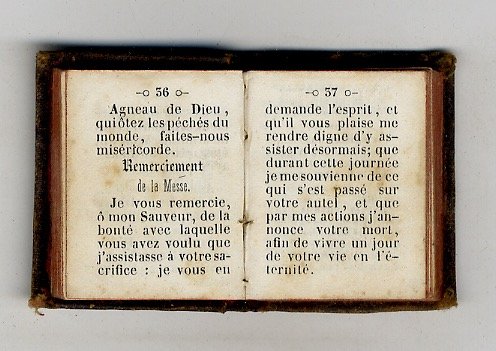 -o 36 o-
Agneau de Dieu,
qui ôtez les péchés du
monde, faites-nous
miséricorde.
Remerciement
de la Messe.
Je vous remercie,
ô mon Sauveur, de la
bonté avec laquelle
vous avez voulu que
j'assistasse à votre sa-
crifice : je vous en
-o 37 o-
demande l'esprit, et
qu'il vous plaise me
rendre digne d'y as-
sister désormais; que
durant cette journée
je me souvienne de ce
qui s'est passé sur
votre autel, et que
par mes actions j'an-
nonce votre mort,
afin de vivre un jour
de votre vie en l'é-
ternité.